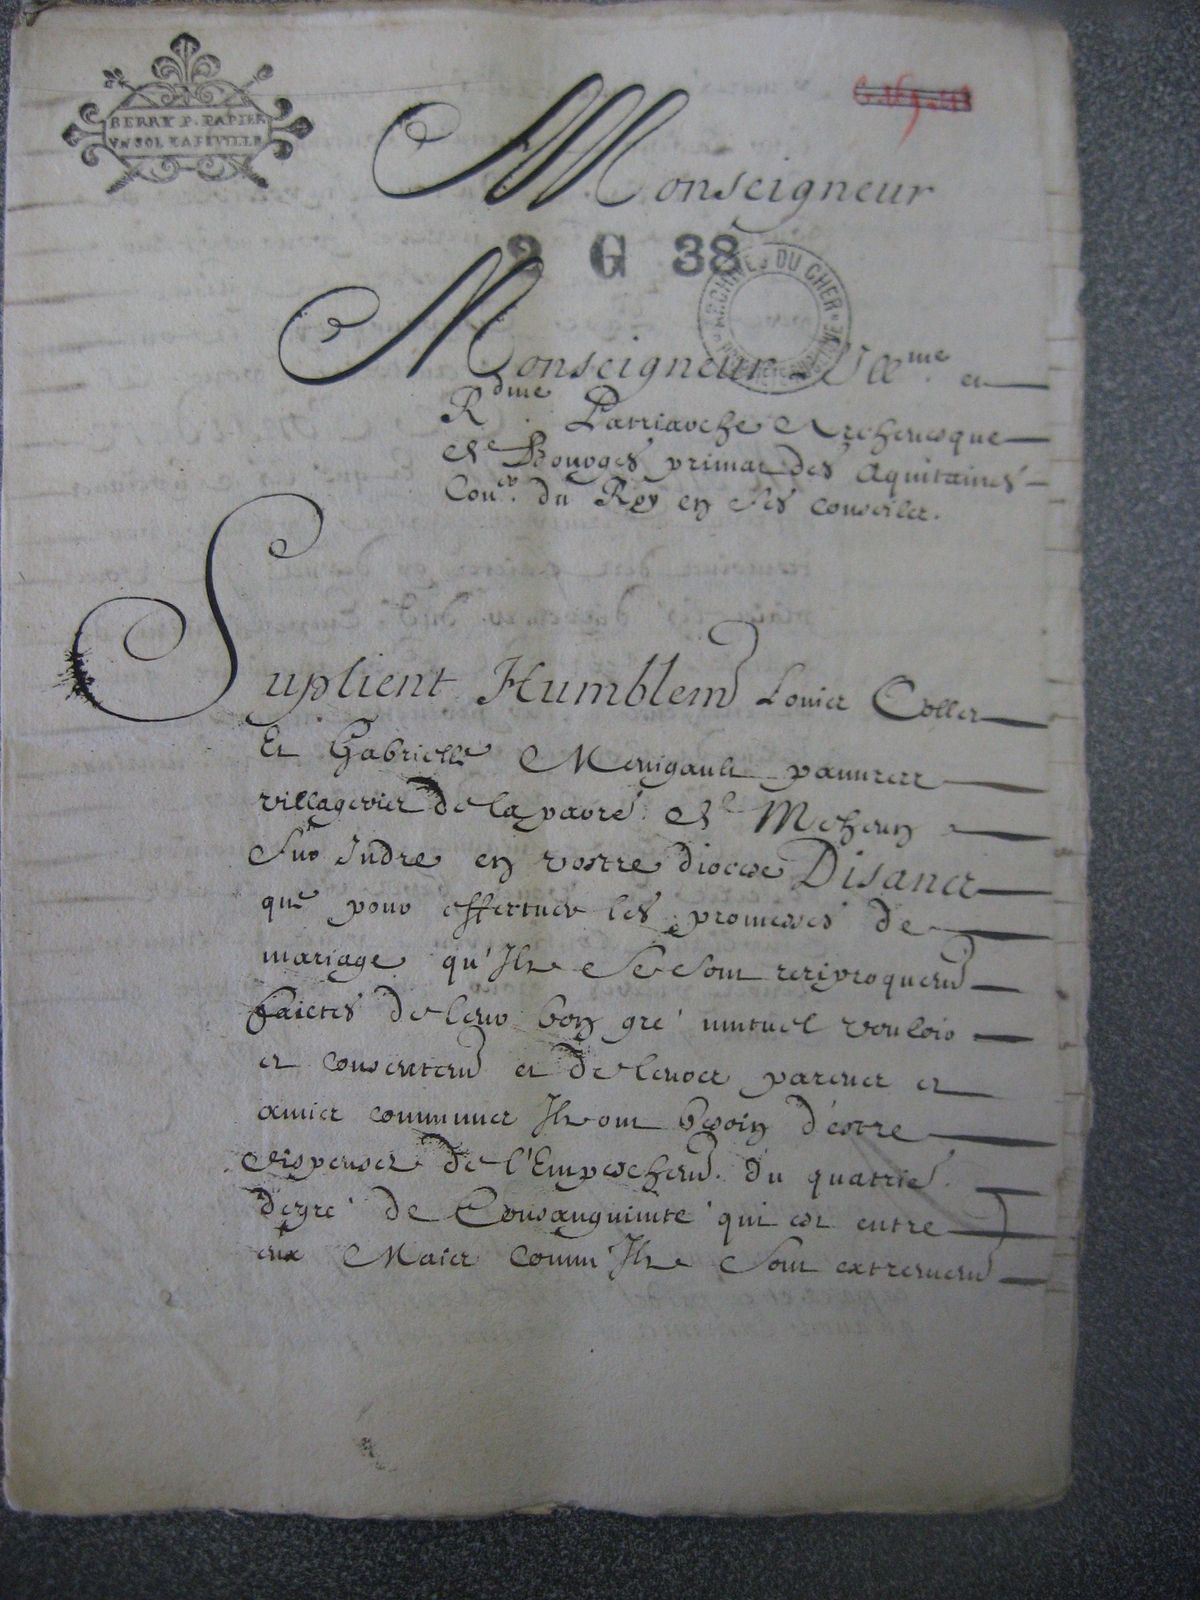 BERRY P. PAPIER
VN SOL LA FEVILLE
Monseigneur
2 G 38
ARCHIVES DU CHER
Monseigneur Ill.me et
R.dme Patriarche Archeuesque
de Bourges primat des Aquitaines
Con.er du Roy en ses conseilz.
Suplient Humblem.t Louis Collet
Et Gabrielle Menigault pauures
villageois de la parois.se de Mehun
Sur Indre en vostre diocese Disant
que pour effectuer les promesses de
mariage qu'Ils Se Sont reciproquem.t
faictes de leur bon gré mutuel vouloir
et consentem.t et de leurs parens et
amis communs Ils ont besoin d'estre
dispenses de l'Empeschem.t du quatrie.
degré de Consanguinité qui est entre
eux Mais comm Ils Sont extremem.t